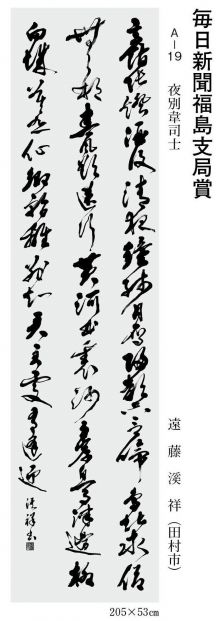 毎日新聞福島支局賞
A－19　夜別韋司士
遠藤溪祥（田村市）
高館張燈酒復清夜鐘殘月雁歸聲只言啼鳥堪求侶
無那春風欲送行黄河曲裏沙為岸白馬津邊柳
向城莫怨他鄉暫離別知君到處有逢迎 溪祥書
205×53cm